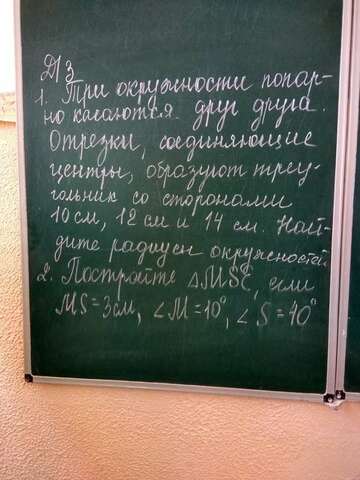 ДЗ
1. Три окружности попар-
но касаются друг друга.
Отрезки, соединяющие
центры, образуют треу-
гольник со сторонами
10 см, 12 см и 14 см. Най-
дите радиусы окружностей.
2. Постройте △MSC, если
MS = 3 см, ∠M = 10°, ∠S = 70°